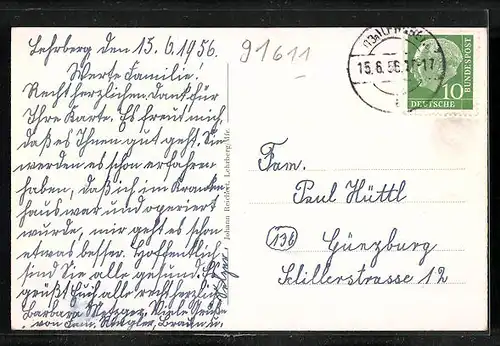 Lehrberg, den 15.6.1956.
Werte Familie!
Recht herzlichen Dank für
Ihre Karte. Es freut mich,
daß es Ihnen gut geht. Sie
werden es schon erfahren
haben, daß ich im Kranken-
haus war und operiert
wurde, mir geht es schon
etwas besser. Hoffentlich
sind Sie alle gesund. Es
grüßt Euch alle recht herzlich
Barbara Metzger. Viele Grüße
von Fam.
91611
Johann Reichert, Lehrberg/Mfr.
15.6.56.
DEUTSCHE
BUNDESPOST
10
Fam.
Paul Hüttl
(13b)
Günzburg
Schillerstrasse 12